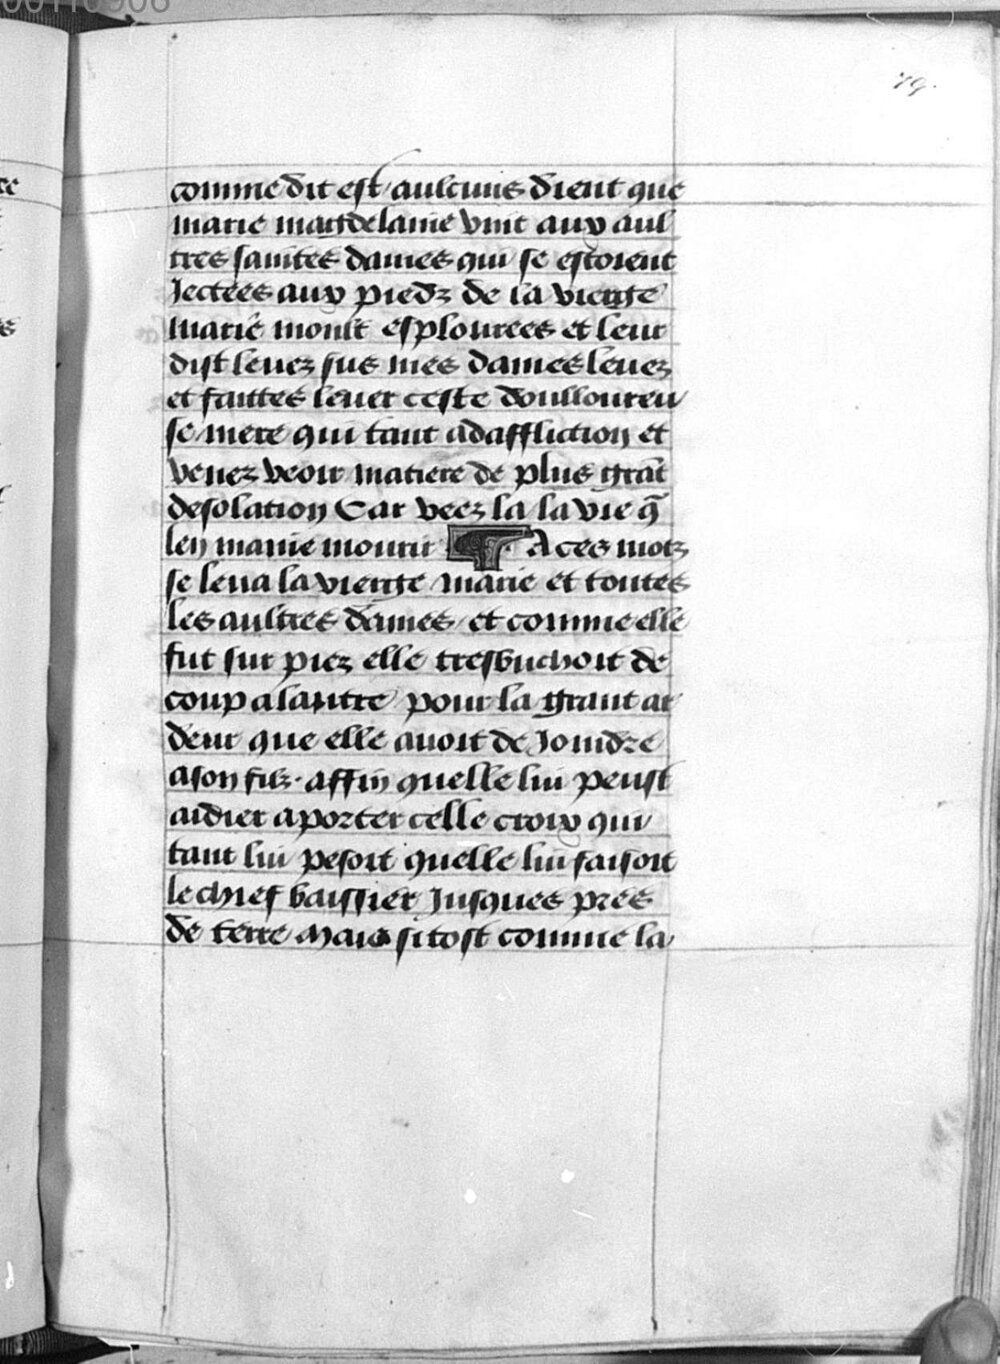 79.
comme dit est / aulcuns dient que
marie magdelaine vint aux aul
tres saintes dames qui se estoient
Jectees aux piedz de la vierge
marie moult esplourees et leur
dist leuez sus mes dames leuez
et faittes leuer ceste doulloureu
se mere qui tant a daffliction et
venez veoir matiere de plus grāt
desolation Car veez la la vie q̄
len maine mourir ¶ A ces motz
se leua la vierge marie et toutes
les aultres dames / et comme elle
fut sur piez elle tresbuchoit de
coup a lautre pour la grant ar
deur que elle auoit de Joindre
a son filz · affin quelle lui peust
aidier a porter celle croix qui
tant lui pesoit quelle lui faisoit
le chief baissier Jusques pres
de terre Mais si tost comme la